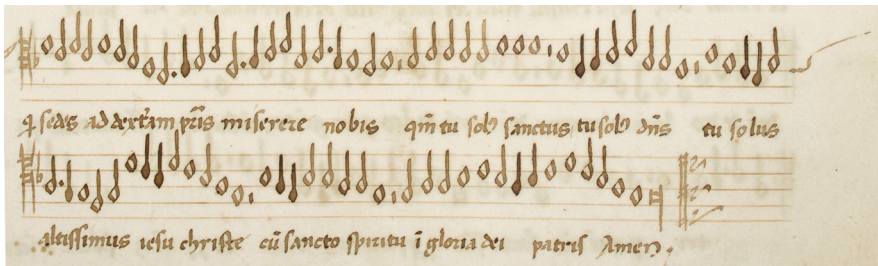 qi sedes ad dext̃am pr̃is miserere nobis qm̃ tu solꝰ sanctus tu solꝰ dñs tu solus
altissimus iesu christe cũ sancto spiritu ĩ gloria dei patris Amen.